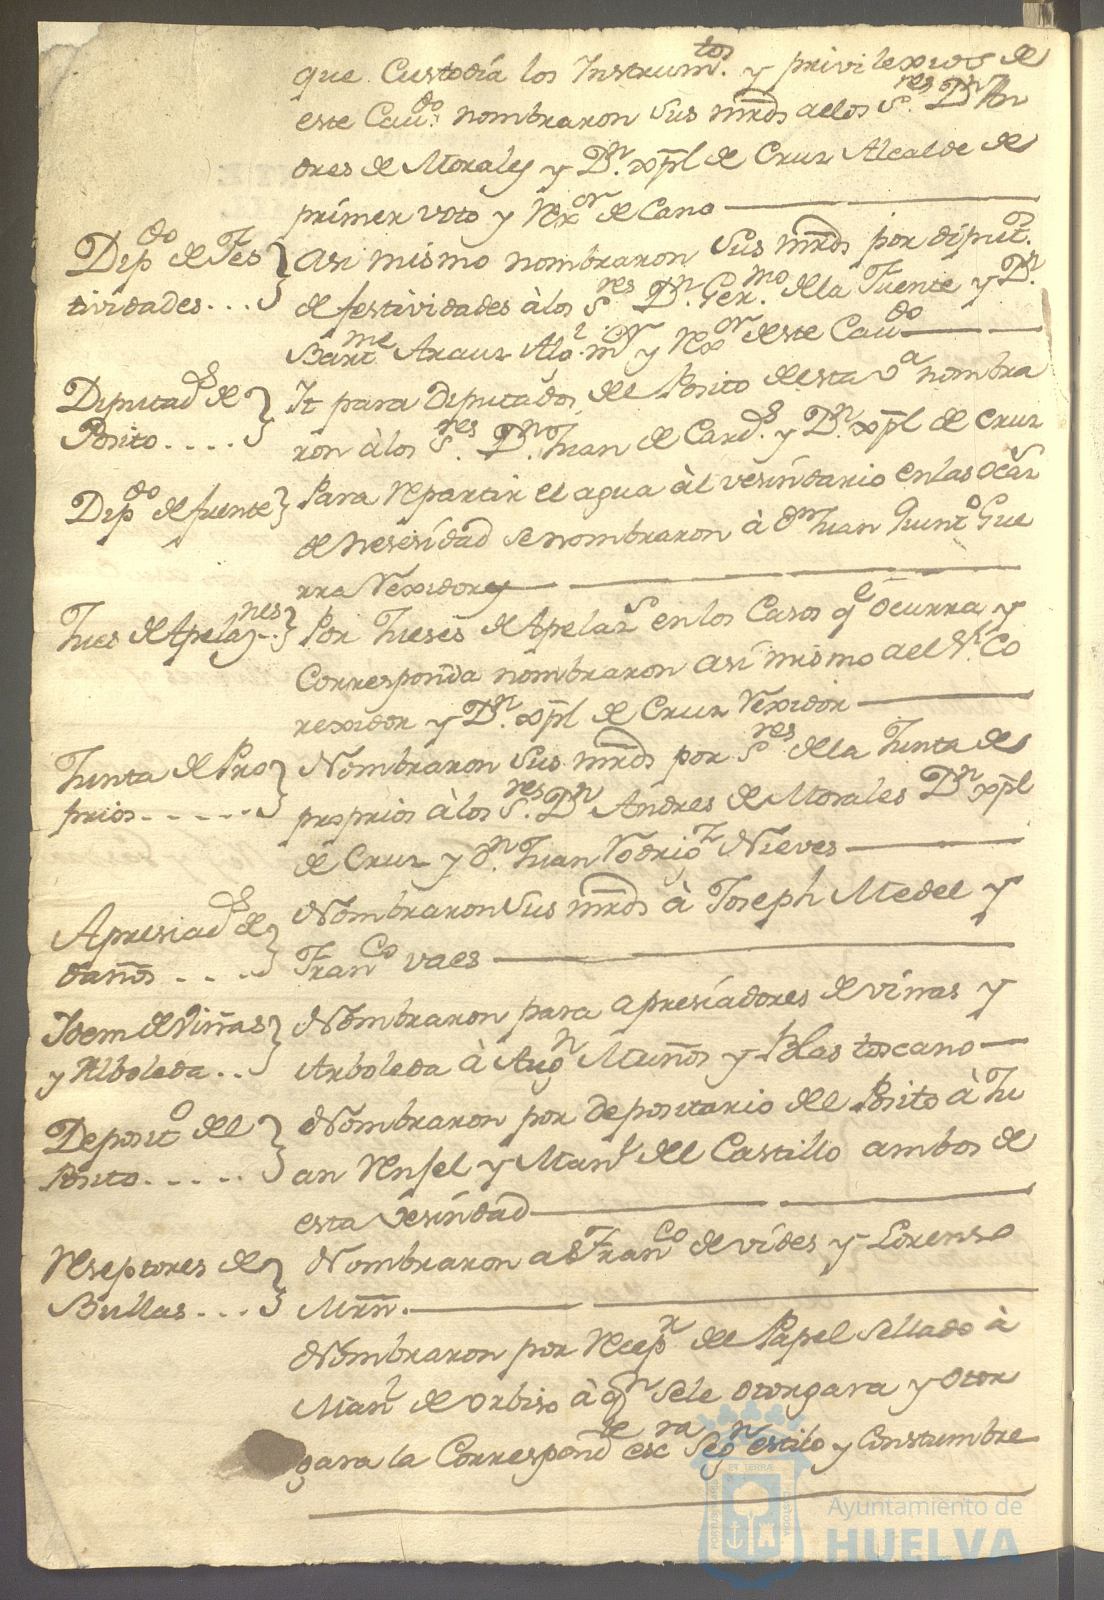 que Custodia los Instrum.tos y privilexios de
este Cav.do nombraron Sus mrds a los S.res D.n An
dres de Morales y D.n xpl de Cruz Alcalde de
primer voto y Rex.or de Cano
Dip.do de Fes
tividades...
Asi mismo nombraron Sus mrds por diput.
de festividades à los S.res D.n Ger.mo de la Fuente y D.n
Bart.me Arauz Alg.l m.or y Rex.or de este Cav.do
Diputad.s de
Posito....
It para Diputados del Posito de esta v.a nombra
ron à los S.res D.n Juan de Card.s y D.n xpl de Cruz
Dip.do de fuente
Para Repartir el agua àl vesindario en las
de nesesidad se nombraron à d.n Juan Gue
rra Rexidor
Jues de Apelaz.nes
Por Jueses de Apelaz.s en los Casos q.e Ocurra y
Corresponda nombraron asi mismo a el S.r Co
rexidor y D.n xpl de Cruz Rexidor
Junta de Pro
prios.....
Nombraron Sus mrds por S.res de la Junta de
proprios à los S.res D.n Andres de Morales D.n xpl
de Cruz y d.n Juan Rodrig.z Nieves
Apresiad.s de
daños....
Nombraron Sus mrds à Joseph Medel y
Fran.co vaes
Idem de Viñas
y Alboleda..
Nombraron para apresiadores de viñas y
Arboleda à Aug.n Muños y Blas toscano
Deposit.o del
Posito.....
Nombraron por depositario del Posito à Ju
an Rensel y Man.l del Castillo ambos de
esta Vesindad
Reseptores de
Bullas...
Nombraron a Fran.co de vides y Lorenso
Mrñ.
Nombraron por Recep.r del Papel Sellado à
Man.l de Orbiso à q.n Sele otorgara y otor
gara la Correspond.te esc.ra Seg.n estilo y Constumbre
Ayuntamiento de
HUELVA